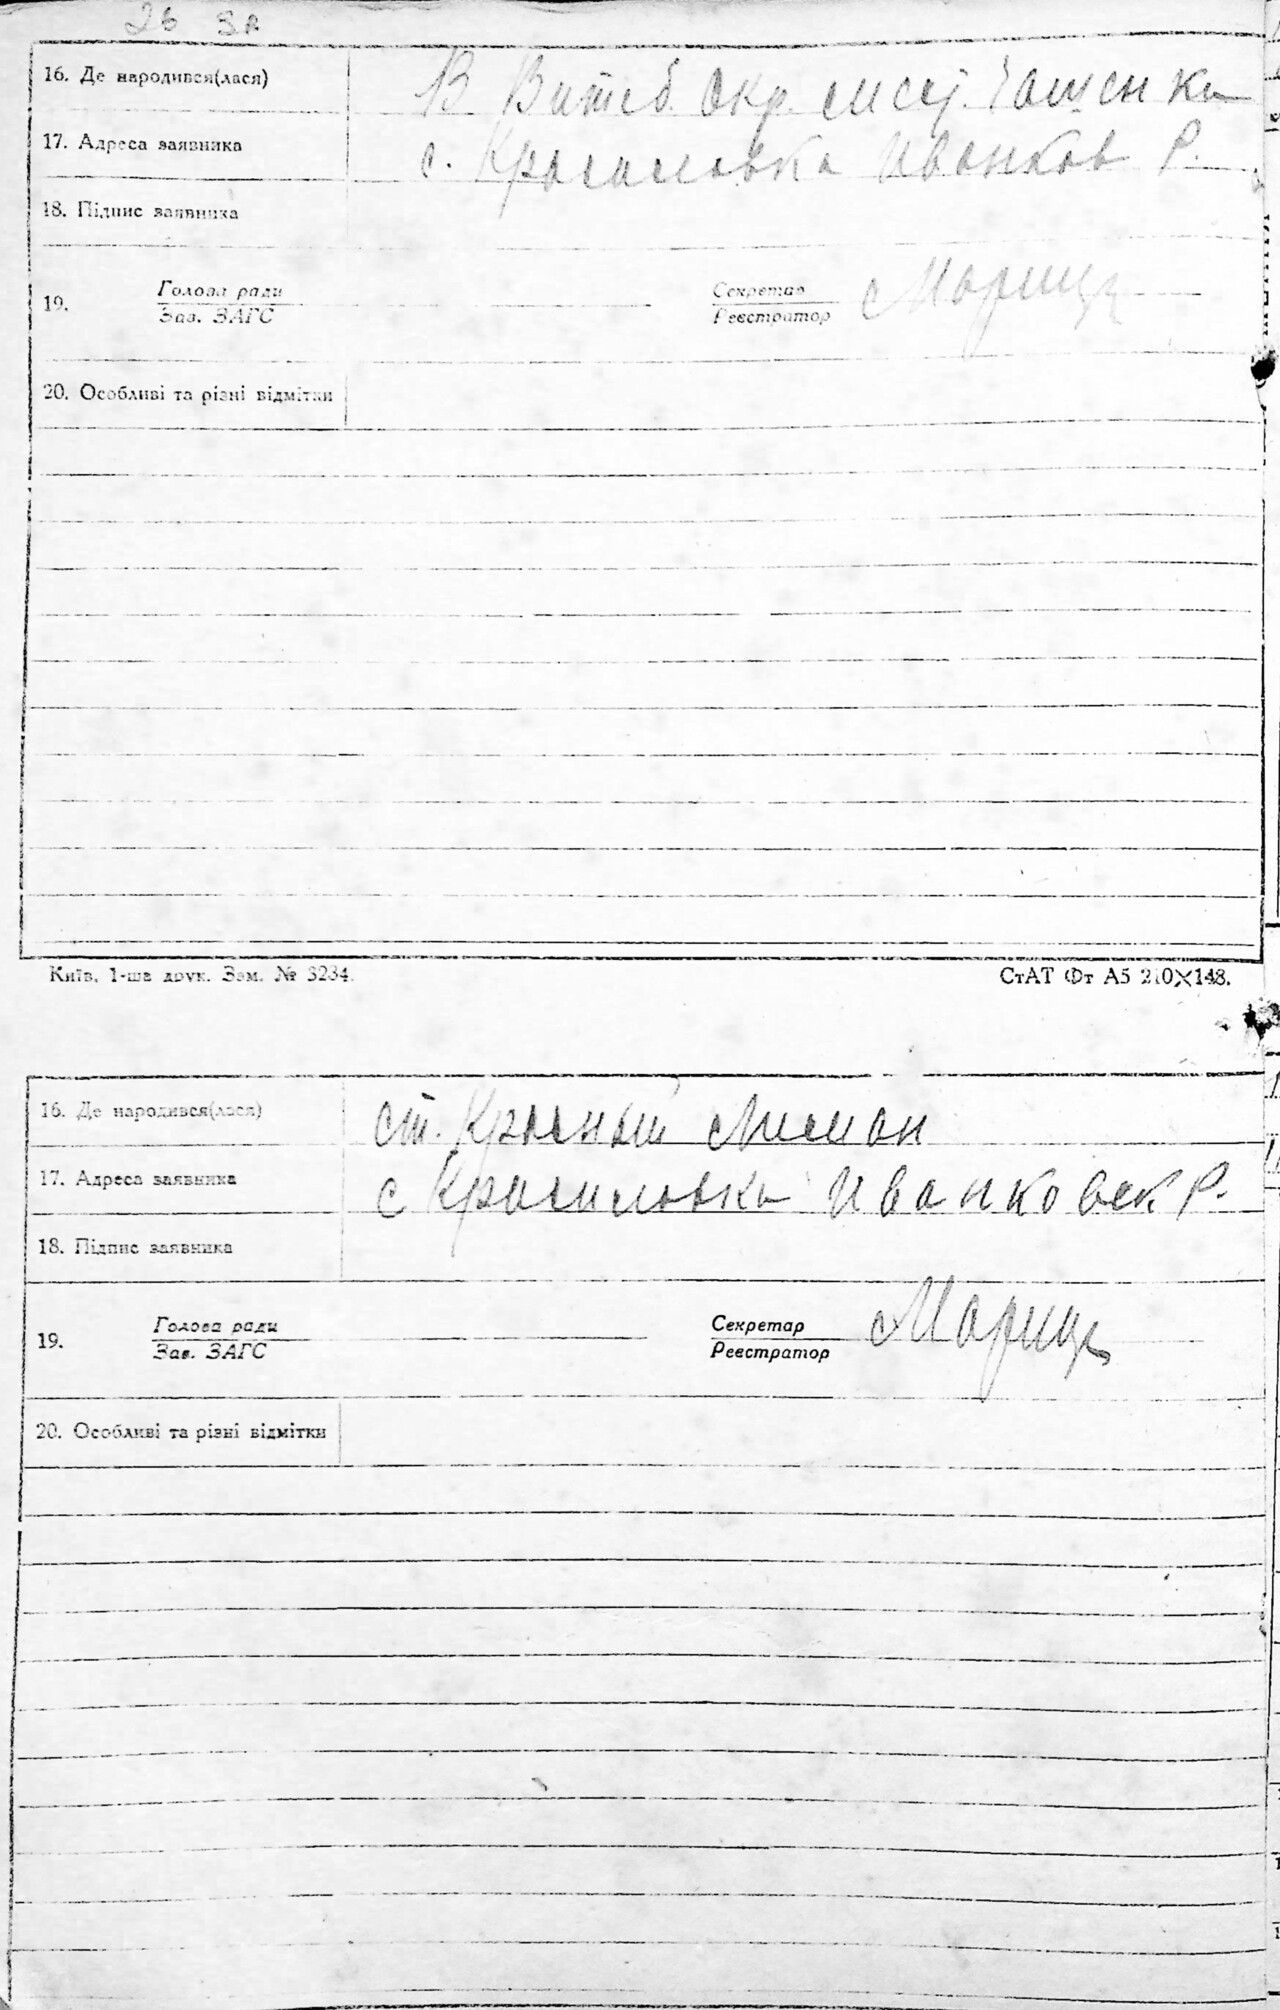 26 зв
16. Де народився(лася) В Витеб. Окр. мест. Чашенки
17. Адреса заявника с. Красиловка Иванков Р.
18. Підпис заявника
19. Голова ради Секретар Мориц
Зав. ЗАГС Реєстратор
20. Особливі та різні відмітки
Київ, 1-ша друк. Зам. № 3234. СтАТ Фт А5 210×148.
16. Де народився(лася) ст. Красный Лиман
17. Адреса заявника с Красиловка Иванковск Р.
18. Підпис заявника
19. Голова ради Секретар Мориц
Зав. ЗАГС Реєстратор
20. Особливі та різні відмітки